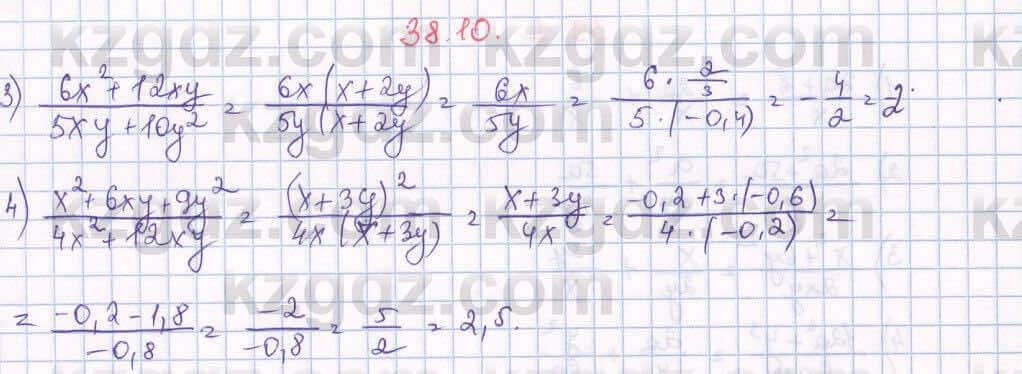 38.10.
3) (6x²+12xy)/(5xy+10y²) = (6x(x+2y))/(5y(x+2y) = 6x/5y = (6·2/3)/(5·(-0,4)) = -4/2 = 2.
4) (x²+6xy+9y²)/(4x²+12xy) = (x+3y)²/(4x(x+3y)) = (x+3y)/4x = (-0,2+3·(-0,6))/(4·(-0,2)) =
= (-0,2-1,8)/(-0,8) = -2/-0,8 = 5/2 = 2,5.
kzgdz.com